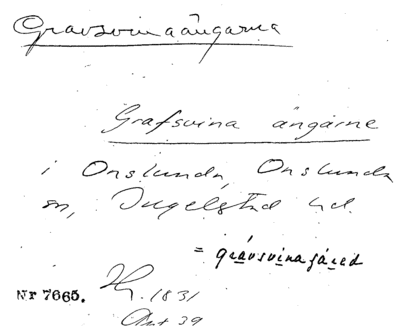 Gravsvinaängarna
Grafsvina ängarne
i Onslunda, Onslunda
sn, Ingelstad hd.
= gravsvinajáred
Nr 7665.
1831
Akt 39